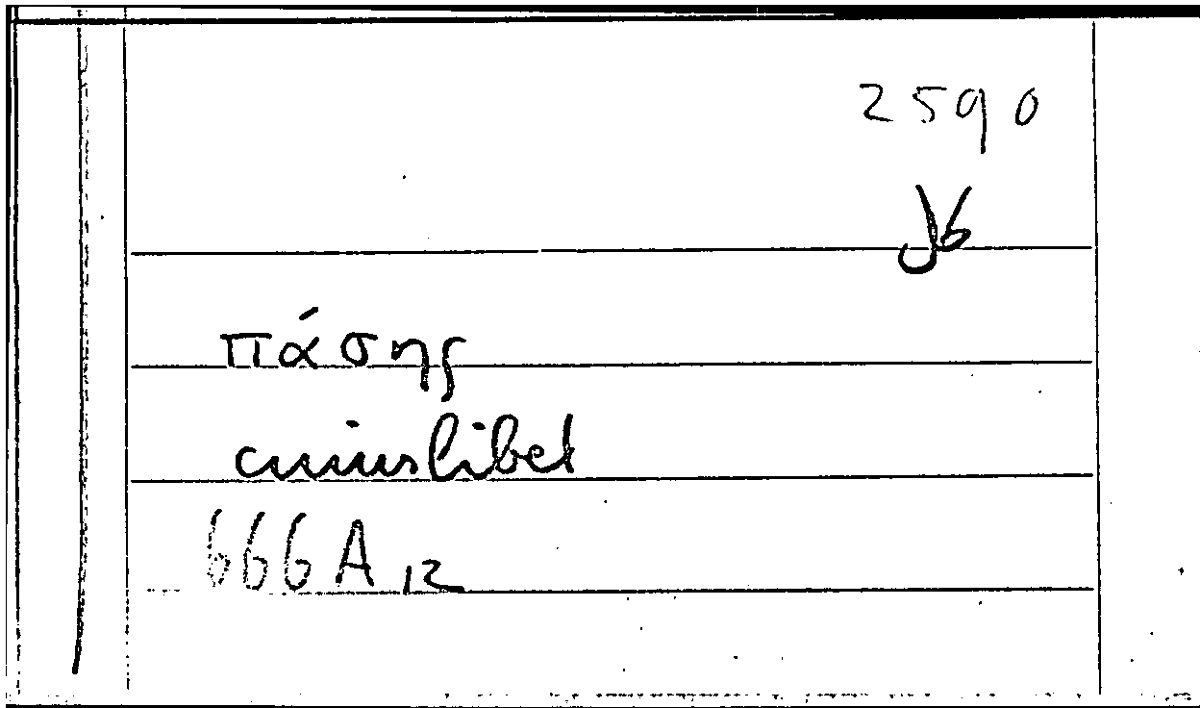 2590
πάσης
cuiuslibet
666A 12